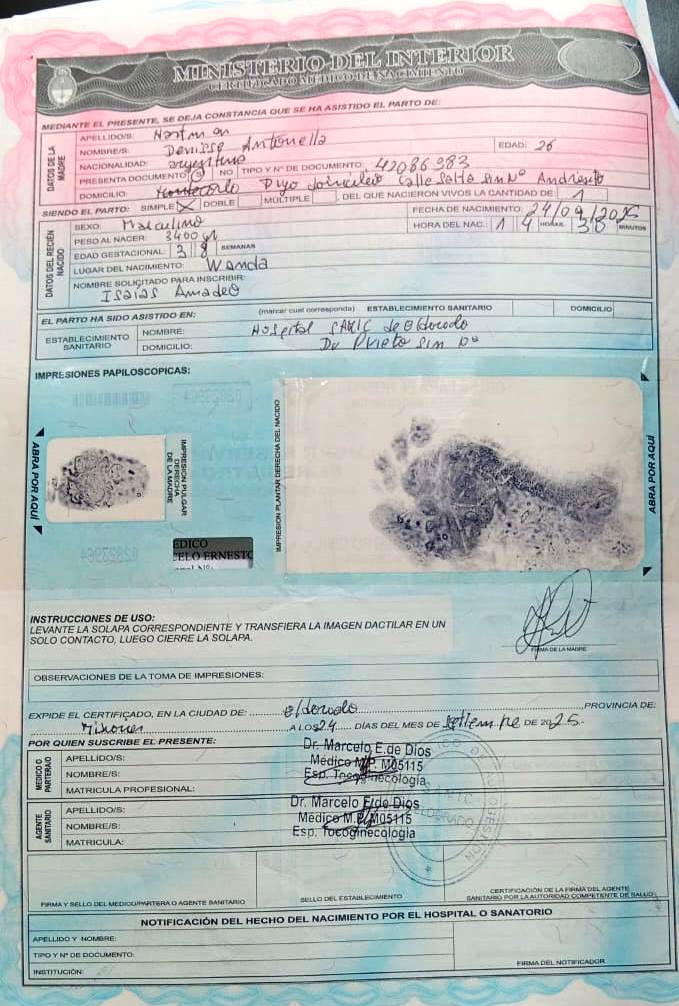 MINISTERIO DEL INTERIOR
CERTIFICADO MÉDICO DE NACIMIENTO
MEDIANTE EL PRESENTE, SE DEJA CONSTANCIA QUE SE HA ASISTIDO EL PARTO DE:
DATOS DE LA MADRE
APELLIDO/S:
NOMBRE/S: Denisse Antonella EDAD: 26
NACIONALIDAD: argentina
PRESENTA DOCUMENTO SI NO TIPO Y Nº DE DOCUMENTO: 42086983
DOMICILIO: Montecarlo calle Salta sin Nº Andresito
SIENDO EL PARTO: SIMPLE X DOBLE MÚLTIPLE , DEL QUE NACIERON VIVOS LA CANTIDAD DE 1
DATOS DEL RECIÉN NACIDO
SEXO: Masculino FECHA DE NACIMIENTO: 24/09/2025
PESO AL NACER: 3400 gr HORA DEL NAC.: 14 HORAS 30 MINUTOS
EDAD GESTACIONAL: 38 SEMANAS
LUGAR DEL NACIMIENTO: Wanda
NOMBRE SOLICITADO PARA INSCRIBIR:
Isaias Amadeo
EL PARTO HA SIDO ASISTIDO EN: (marcar cual corresponda) ESTABLECIMIENTO SANITARIO DOMICILIO
ESTABLECIMIENTO SANITARIO
NOMBRE: Hospital SAMIC de eldorado
DOMICILIO: Dr Prieto sin nº
IMPRESIONES PAPILOSCOPICAS:
ABRA POR AQUÍ
IMPRESION PULGAR DERECHA DE LA MADRE
IMPRESION PLANTAR DERECHA DEL NACIDO
ABRA POR AQUÍ
EDICO
CELO ERNESTO
INSTRUCCIONES DE USO:
LEVANTE LA SOLAPA CORRESPONDIENTE Y TRANSFIERA LA IMAGEN DACTILAR EN UN
SOLO CONTACTO, LUEGO CIERRE LA SOLAPA.
FIRMA DE LA MADRE
OBSERVACIONES DE LA TOMA DE IMPRESIONES:
EXPIDE EL CERTIFICADO, EN LA CIUDAD DE: eldorado PROVINCIA DE:
Misiones A LOS 24 DÍAS DEL MES DE Setiembre DE 2025.-
POR QUIEN SUSCRIBE EL PRESENTE:
MEDICO O PARTERA/O
APELLIDO/S: Dr. Marcelo E. de Dios
NOMBRE/S: Médico M.P. M05115
MATRICULA PROFESIONAL: Esp. Tocoginecología
AGENTE SANITARIO
APELLIDO/S: Dr. Marcelo E. de Dios
NOMBRE/S: Médico M.P. M05115
MATRICULA: Esp. Tocoginecología
FIRMA Y SELLO DEL MEDICO/PARTERA O AGENTE SANITARIO
SELLO DEL ESTABLECIMIENTO
CERTIFICACIÓN DE LA FIRMA DEL AGENTE
SANITARIO POR LA AUTORIDAD COMPETENTE DE SALUD
NOTIFICACIÓN DEL HECHO DEL NACIMIENTO POR EL HOSPITAL O SANATORIO
APELLIDO Y NOMBRE:
TIPO Y Nº DE DOCUMENTO:
INSTITUCIÓN:
FIRMA DEL NOTIFICADOR